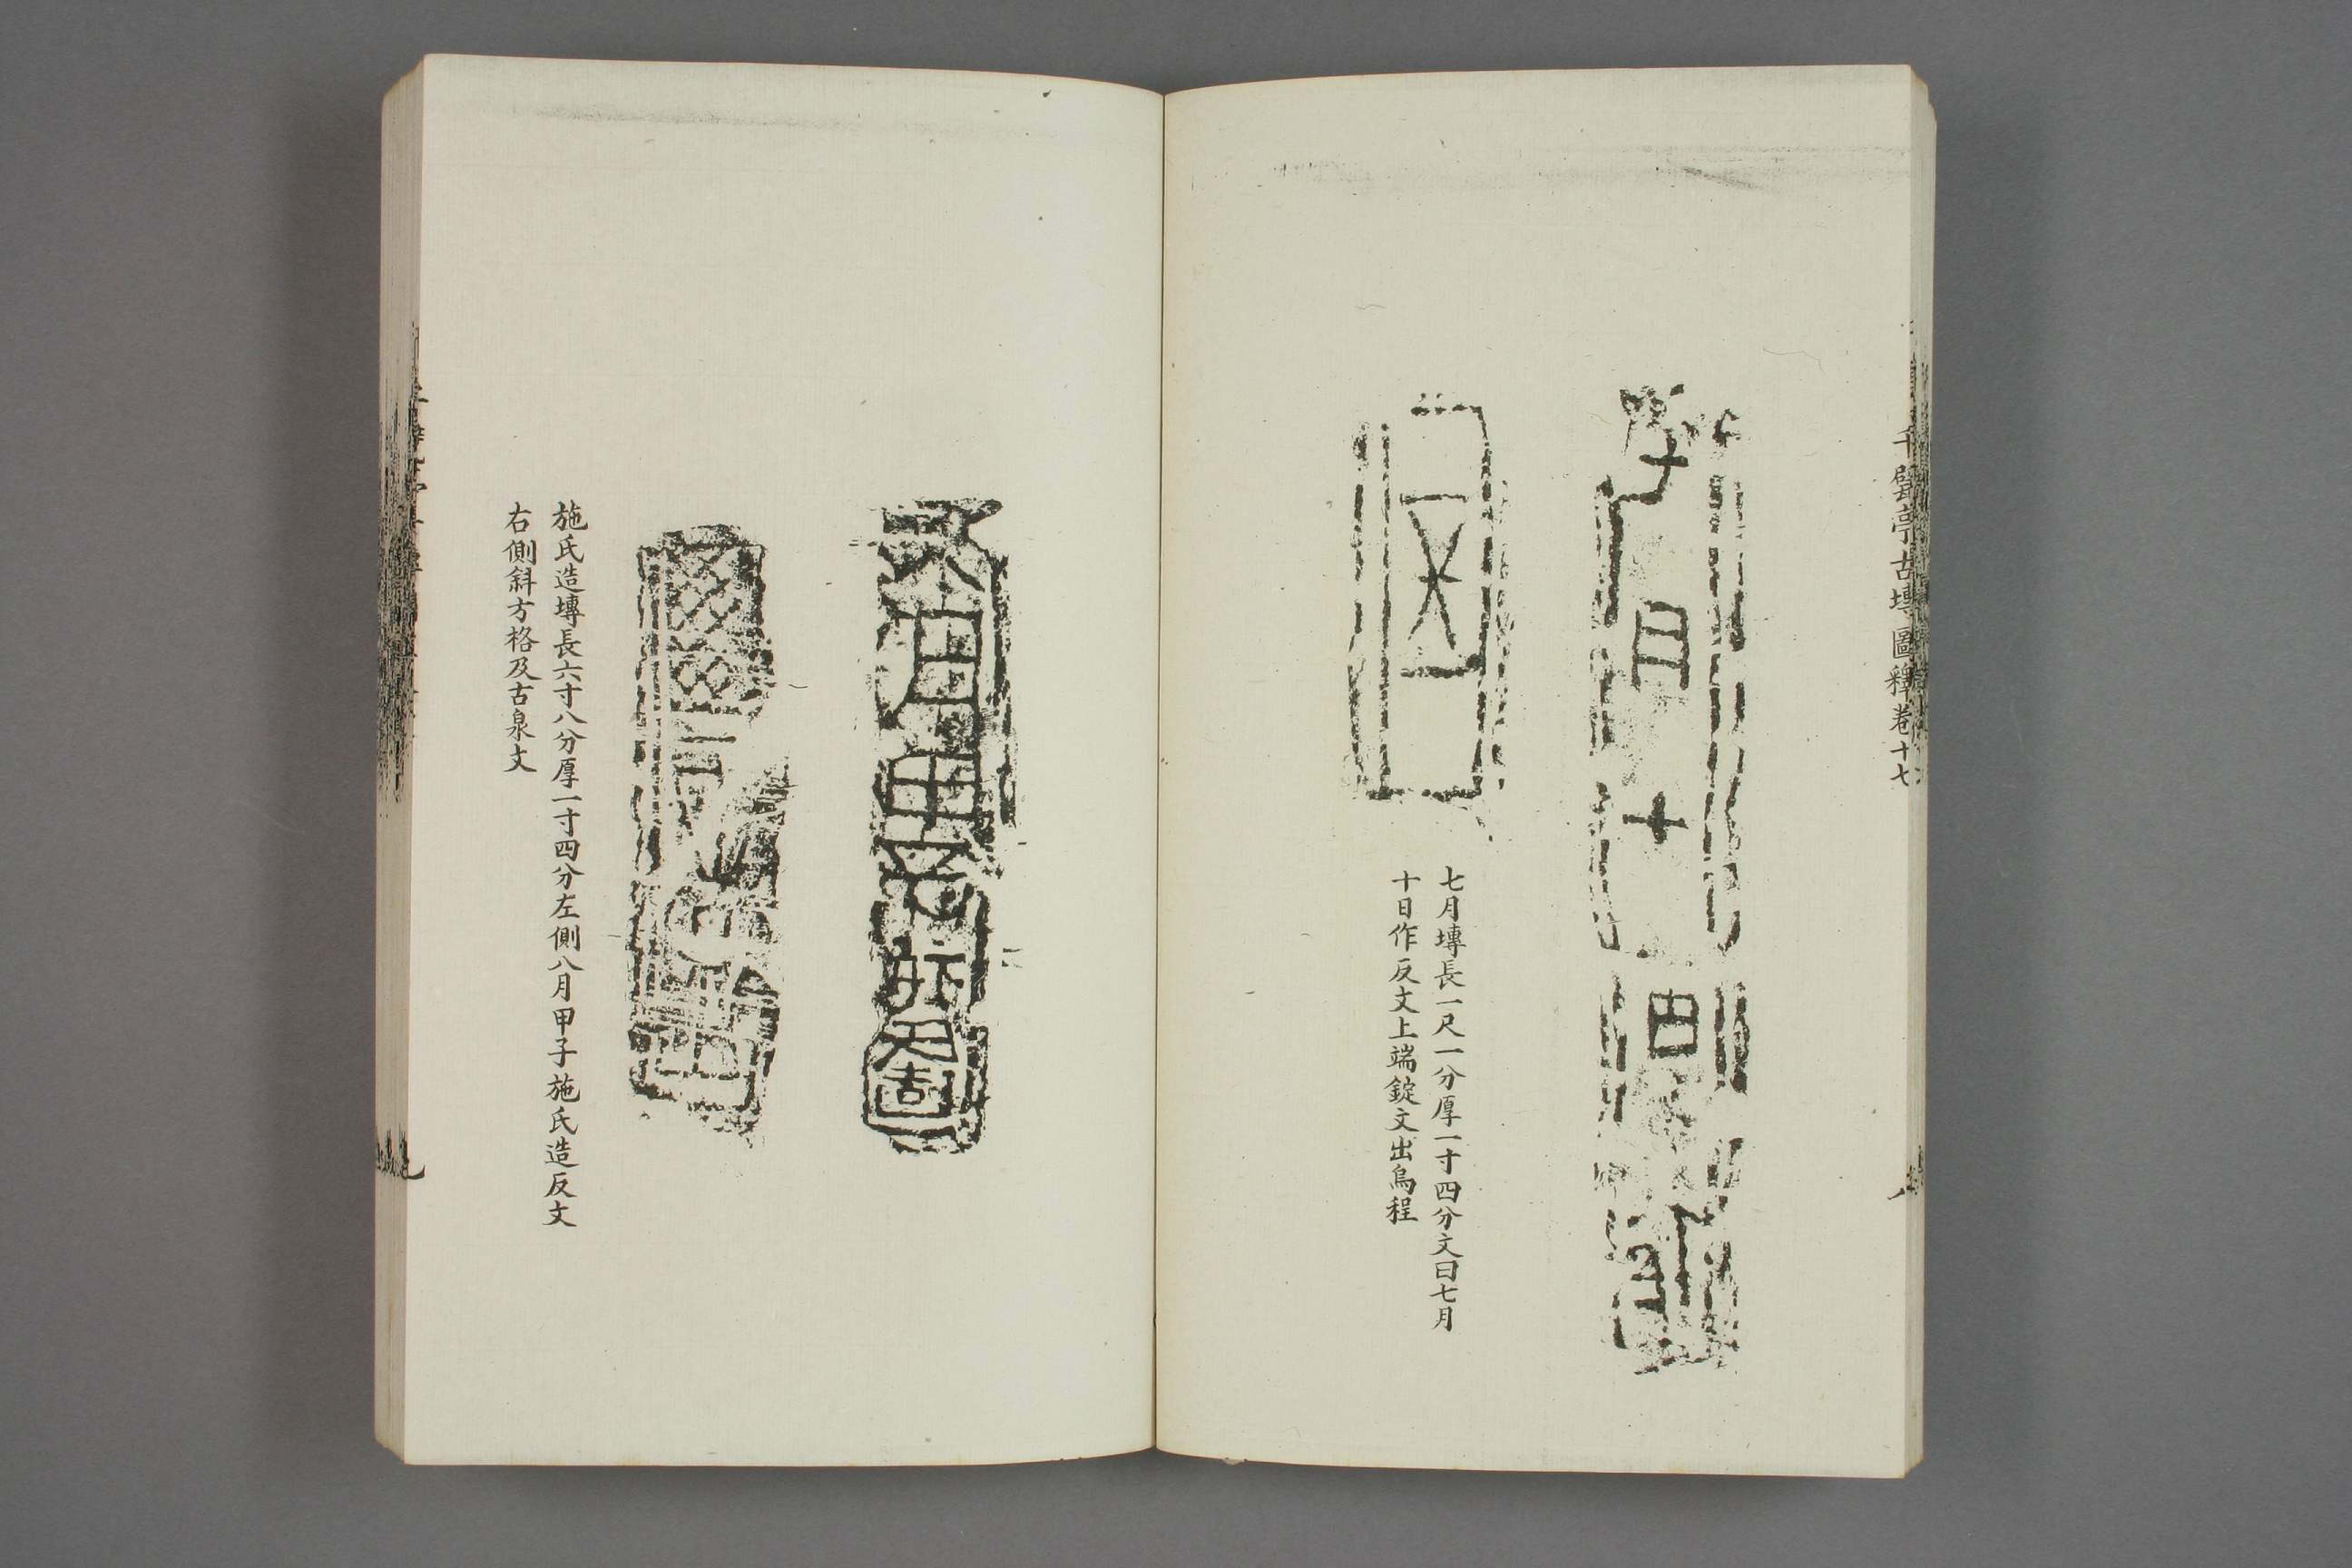 千甓亭古塼圖釋卷十七
七月塼長一尺一分厚一寸四分文曰七月
十日作反文上端錠文出烏程
八月甲子施氏造
施氏造塼長六寸八分厚一寸四分左側八月甲子施氏造反文
右側斜方格及古泉文